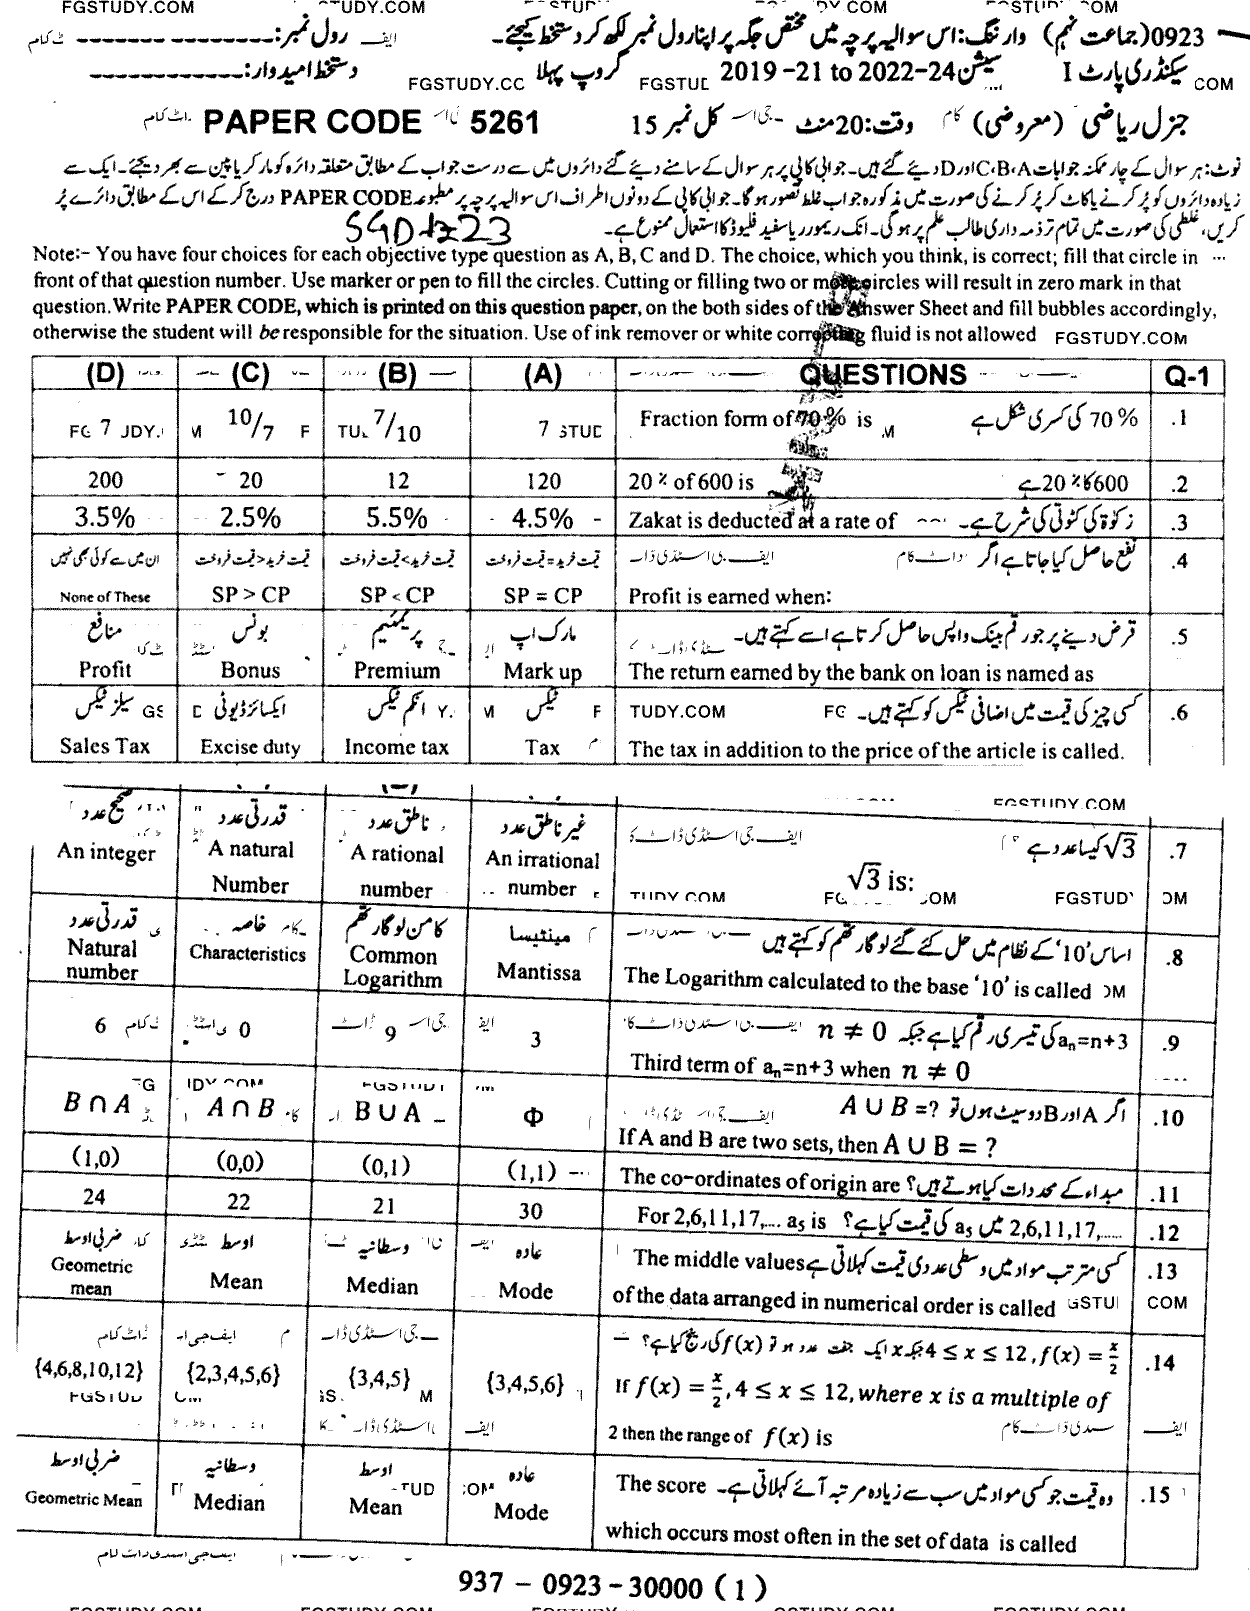 FGSTUDY.COM
0923(جماعت نہم) وارننگ: اس سوالیہ پرچہ میں مختص جگہ پر اپنا رول نمبر لکھ کر دستخط کیجئے۔ رول نمبر:
سیکنڈری پارٹ I سیشن 2019-21 to 2022-24 گروپ پہلا دستخط امیدوار:
جنرل ریاضی (معروضی) وقت: 20 منٹ کل نمبر 15 PAPER CODE 5261
نوٹ: ہر سوال کے چار ممکنہ جوابات A،B،C اور D دیئے گئے ہیں۔ جوابی کاپی پر ہر سوال کے سامنے دیئے گئے دائروں میں سے درست جواب کے مطابق متعلقہ دائرہ کو مارکر یا پین سے بھر دیجئے۔ ایک سے
زیادہ دائروں کو پُر کرنے یا کاٹ کر پُر کرنے کی صورت میں مذکورہ جواب غلط تصور ہو گا۔ جوابی کاپی کے دونوں اطراف اس سوالیہ پرچہ پر مطبوعہ PAPER CODE درج کر کے اس کے مطابق دائرے پُر
کریں، غلطی کی صورت میں تمام تر ذمہ داری طالب علم پر ہوگی۔ انک ریمور ریا سفید فلیوڈ کا استعمال ممنوع ہے۔
Note:- You have four choices for each objective type question as A, B, C and D. The choice, which you think, is correct; fill that circle in
front of that question number. Use marker or pen to fill the circles. Cutting or filling two or more circles will result in zero mark in that
question. Write PAPER CODE, which is printed on this question paper, on the both sides of the Answer Sheet and fill bubbles accordingly,
otherwise the student will be responsible for the situation. Use of ink remover or white correcting fluid is not allowed FGSTUDY.COM
(D) (C) (B) (A) QUESTIONS Q-1
7 10/7 7/10 7 Fraction form of 70 % is 70 % کی کسری شکل ہے .1
200 20 12 120 20 % of 600 is 600 کا 20 % ہے .2
3.5% 2.5% 5.5% 4.5% Zakat is deducted at a rate of زکوٰۃ کی کٹوتی کی شرح ہے۔ .3
ان میں سے کوئی بھی نہیں قیمت خرید>قیمت فروخت قیمت خرید<قیمت فروخت قیمت خرید=قیمت فروخت نفع حاصل کیا جاتا ہے اگر .4
None of These SP > CP SP < CP SP = CP Profit is earned when:
منافع بونس پریمیئم مارک اپ قرض دینے پر جو رقم بینک واپس حاصل کرتا ہے اسے کہتے ہیں۔ .5
Profit Bonus Premium Mark up The return earned by the bank on loan is named as
سیلز ٹیکس ایکسائز ڈیوٹی انکم ٹیکس ٹیکس کسی چیز کی قیمت میں اضافی ٹیکس کو کہتے ہیں۔ .6
Sales Tax Excise duty Income tax Tax The tax in addition to the price of the article is called.
FGSTUDY.COM
صحیح عدد قدرتی عدد ناطق عدد غیر ناطق عدد √3 کیسا عدد ہے .7
An integer A natural Number A rational number An irrational number √3 is:
قدرتی عدد خاصہ کامن لوگارتھم مینٹیسا اساس '10' کے نظام میں حل کئے گئے لوگارتھم کو کہتے ہیں .8
Natural number Characteristics Common Logarithm Mantissa The Logarithm calculated to the base '10' is called
6 0 9 3 aₙ=n+3 کی تیسری رقم کیا ہے جبکہ n ≠ 0 .9
Third term of aₙ=n+3 when n ≠ 0
B ∩ A A ∩ B B ∪ A Φ اگر A اور B دو سیٹ ہوں تو A ∪ B =? .10
If A and B are two sets, then A ∪ B = ?
(1,0) (0,0) (0,1) (1,1) The co-ordinates of origin are مبداء کے محددات کیا ہوتے ہیں؟ .11
24 22 21 30 For 2,6,11,17,.... a₅ is 2,6,11,17,...... میں a₅ کی قیمت کیا ہے؟ .12
ضربی اوسط اوسط وسطانیہ عادہ The middle values کسی مرتب مواد میں وسطی عددی قیمت کہلاتی ہے .13
Geometric mean Mean Median Mode of the data arranged in numerical order is called
f(x) = x/2 , 4 ≤ x ≤ 12 جبکہ x ایک جفت عدد ہو تو f(x) کی رینج کیا ہے؟ .14
{4,6,8,10,12} {2,3,4,5,6} {3,4,5} {3,4,5,6} If f(x) = x/2, 4 ≤ x ≤ 12, where x is a multiple of
2 then the range of f(x) is
ضربی اوسط وسطانیہ اوسط عادہ The score وہ قیمت جو کسی مواد میں سب سے زیادہ مرتبہ آئے کہلاتی ہے۔ .15
Geometric Mean Median Mean Mode which occurs most often in the set of data is called
937 - 0923 - 30000 (1)